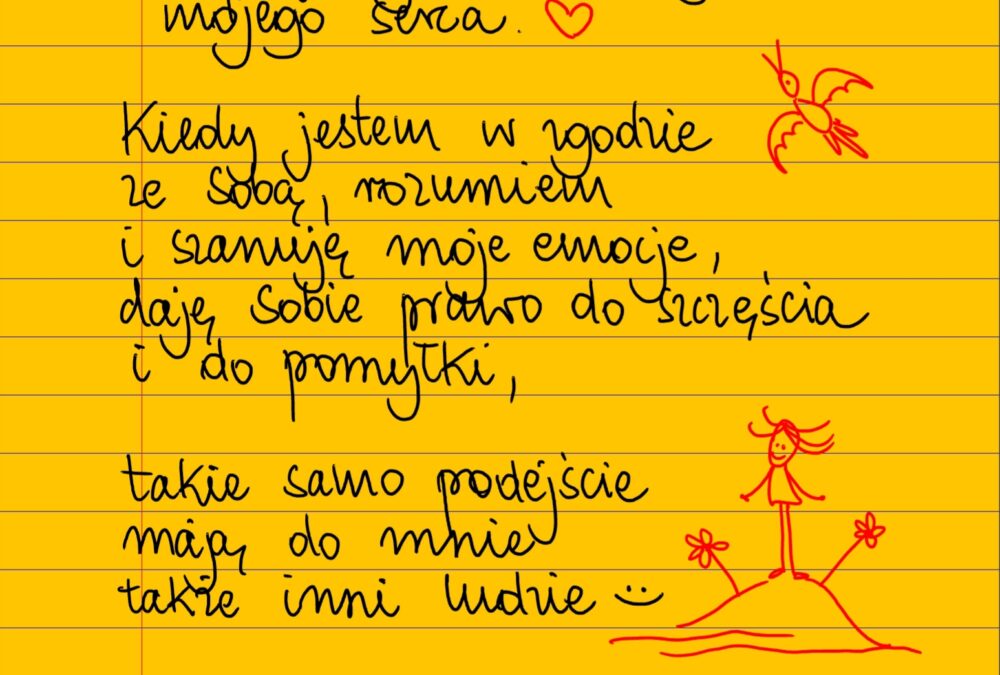 mojego serca.
Kiedy jestem w zgodzie
ze sobą, rozumiem
i szanuję moje emocje,
daję sobie prawo do szczęścia
i do pomyłki,
takie samo podejście
mają do mnie
także inni ludzie